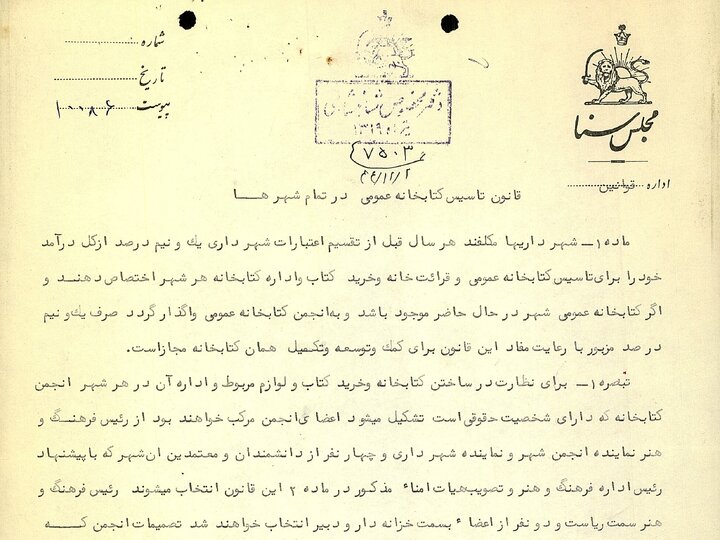 شماره
تاریخ
پیوست ۱۰۰۸۶
دفتر مخصوص شاهنشاهی
۱۳۱۹
۷۵۰۳
۴۴/۱۲/۲
مجلس سنا
اداره قوانین
قانون تاسیس کتابخانه عمومی در تمام شهر ها
ماده ۱- شهر داریها مکلفند هر سال قبل از تقسیم اعتبارات شهر داری یک و نیم درصد ازکل درآمد
خود را برای تاسیس کتابخانه عمومی و قرائت خانه وخرید کتاب واداره کتابخانه هر شهر اختصاص دهند و
اگر کتابخانه عمومی شهر در حال حاضر موجود باشد و به انجمن کتابخانه عمومی واگذار گردد صرف یک و نیم
در صد مزبور با رعایت مفاد این قانون برای کمک وتوسعه وتکمیل همان کتابخانه مجازاست.
تبصره ۱- برای نظارت در ساختن کتابخانه وخرید کتاب و لوازم مربوط و اداره آن در هر شهر انجمن
کتابخانه که دارای شخصیت حقوقی است تشکیل میشود اعضای انجمن مرکب خواهند بود از رئیس فرهنگ و
هنر نماینده انجمن شهر و نماینده شهر داری و چهار نفر از دانشمندان و معتمدین ان شهر که با پیشنهاد
رئیس اداره فرهنگ و هنر و تصویب هیات امناء مذکور در ماده ۲ این قانون انتخاب میشوند رئیس فرهنگ و
هنر سمت ریاست و دو نفر از اعضاء بسمت خزانه دار و دبیر انتخاب خواهند شد تصمیمات انجمن که